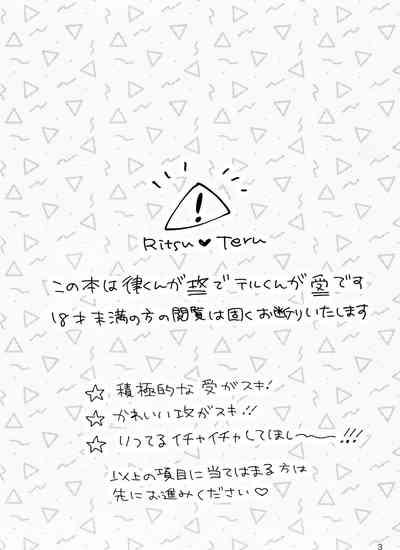 !
Ritsu ♥ Teru
この本は律くんが攻でテルくんが受です
18才未満の方の閲覧は固くお断りいたします
☆ 積極的な受がスキ!
☆ かわいい攻がスキ!!
☆ りつてるイチャイチャしてほし〜〜!!!
以上の項目に当てはまる方は
先にお進みください♡
3